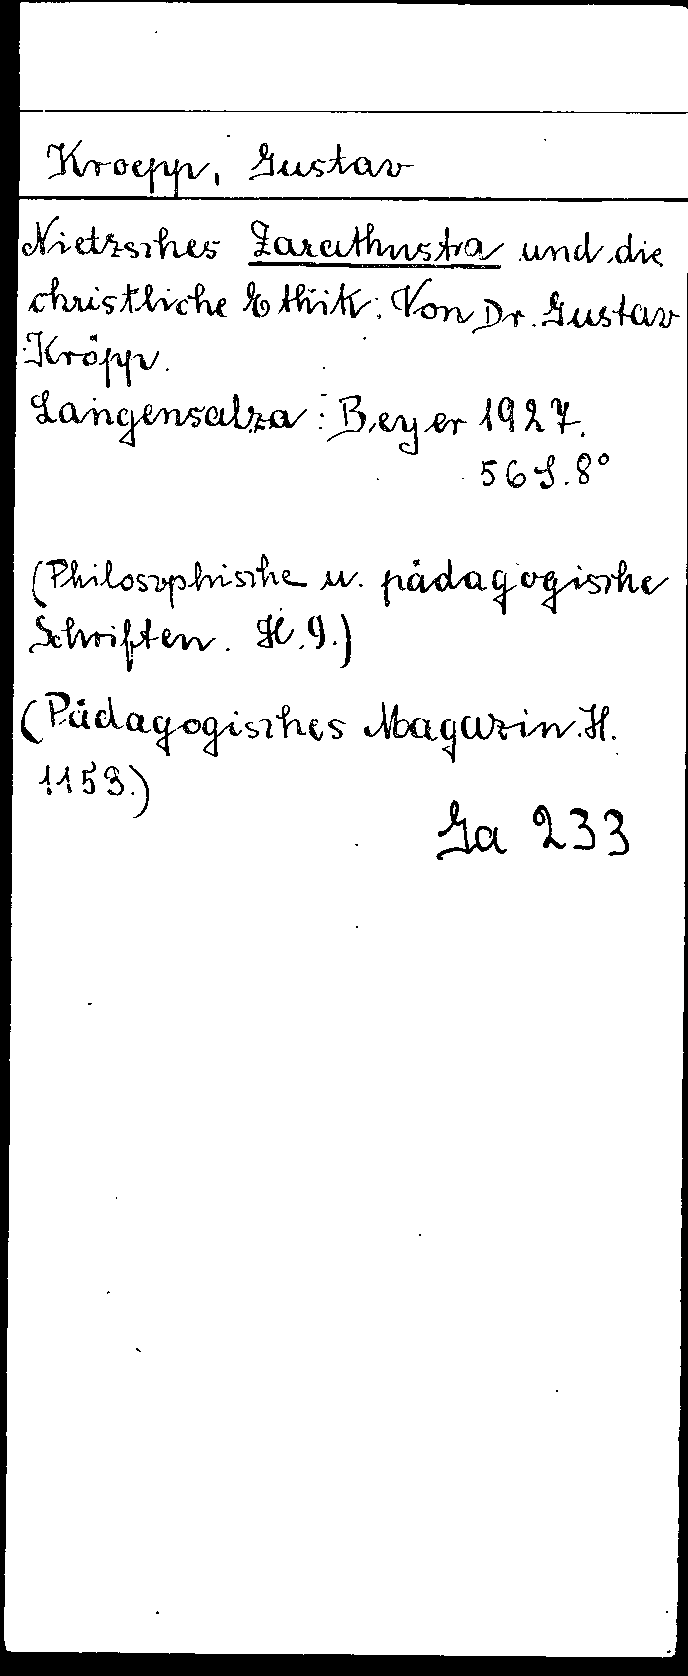 Kroepp, Gustav
Nietzsches Zarathustra und die
christliche Ethik. Von Dr. Gustav
Kröpp.
Langensalza: Beyer 1927.
56 S. 8°
(Philosophische u. pädagogische
Schriften. H. 9.)
(Pädagogisches Magazin. H.
1153.)
Ga 233